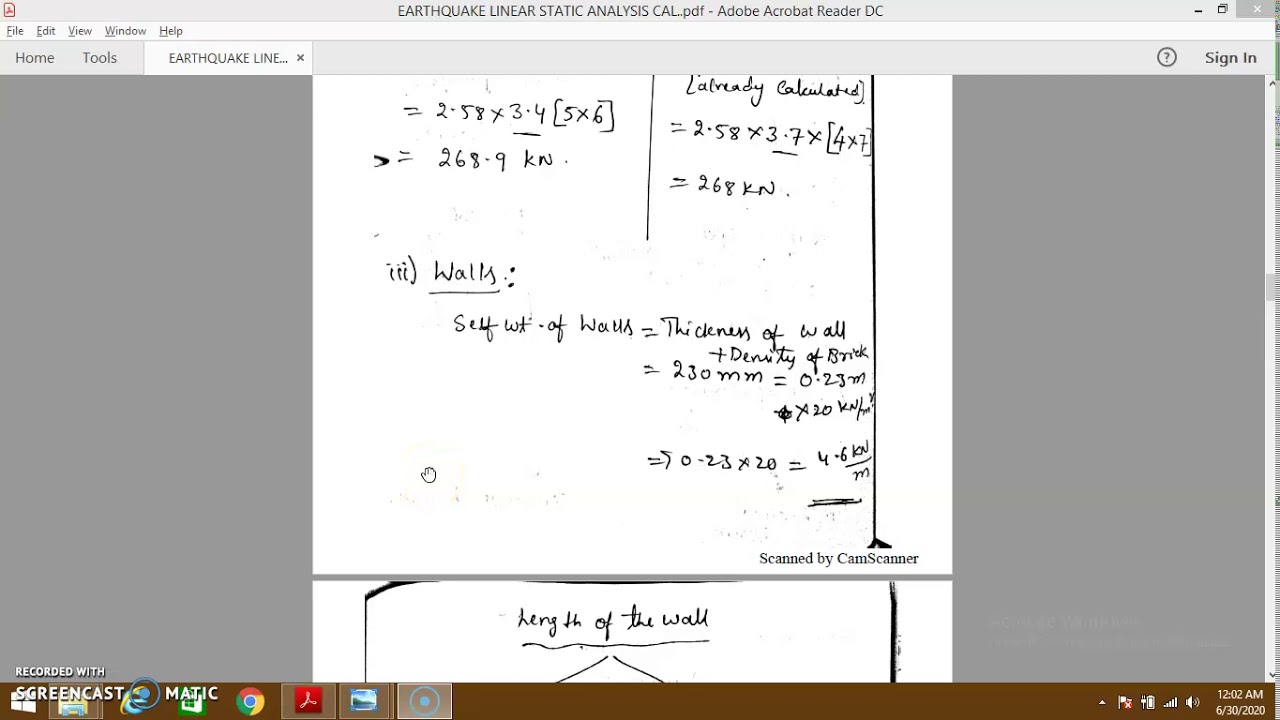 EARTHQUAKE LINEAR STATIC ANALYSIS CAL..pdf - Adobe Acrobat Reader DC
File Edit View Window Help
Home Tools EARTHQUAKE LINE... × ? Sign In
= 2.58 × 3.4 [5×6]
= 268.9 kN.
[already Calculated]
= 2.58 × 3.7 × [4×7]
= 268 kN.
iii) Walls :
Self wt. of Walls = Thickness of wall
+ Density of Brick
= 230 mm = 0.23m
× 20 kN/m³
=> 0.23 × 20 = 4.6 kN/m
Scanned by CamScanner
Length of the wall
RECORDED WITH
SCREENCAST MATIC
12:02 AM
6/30/2020